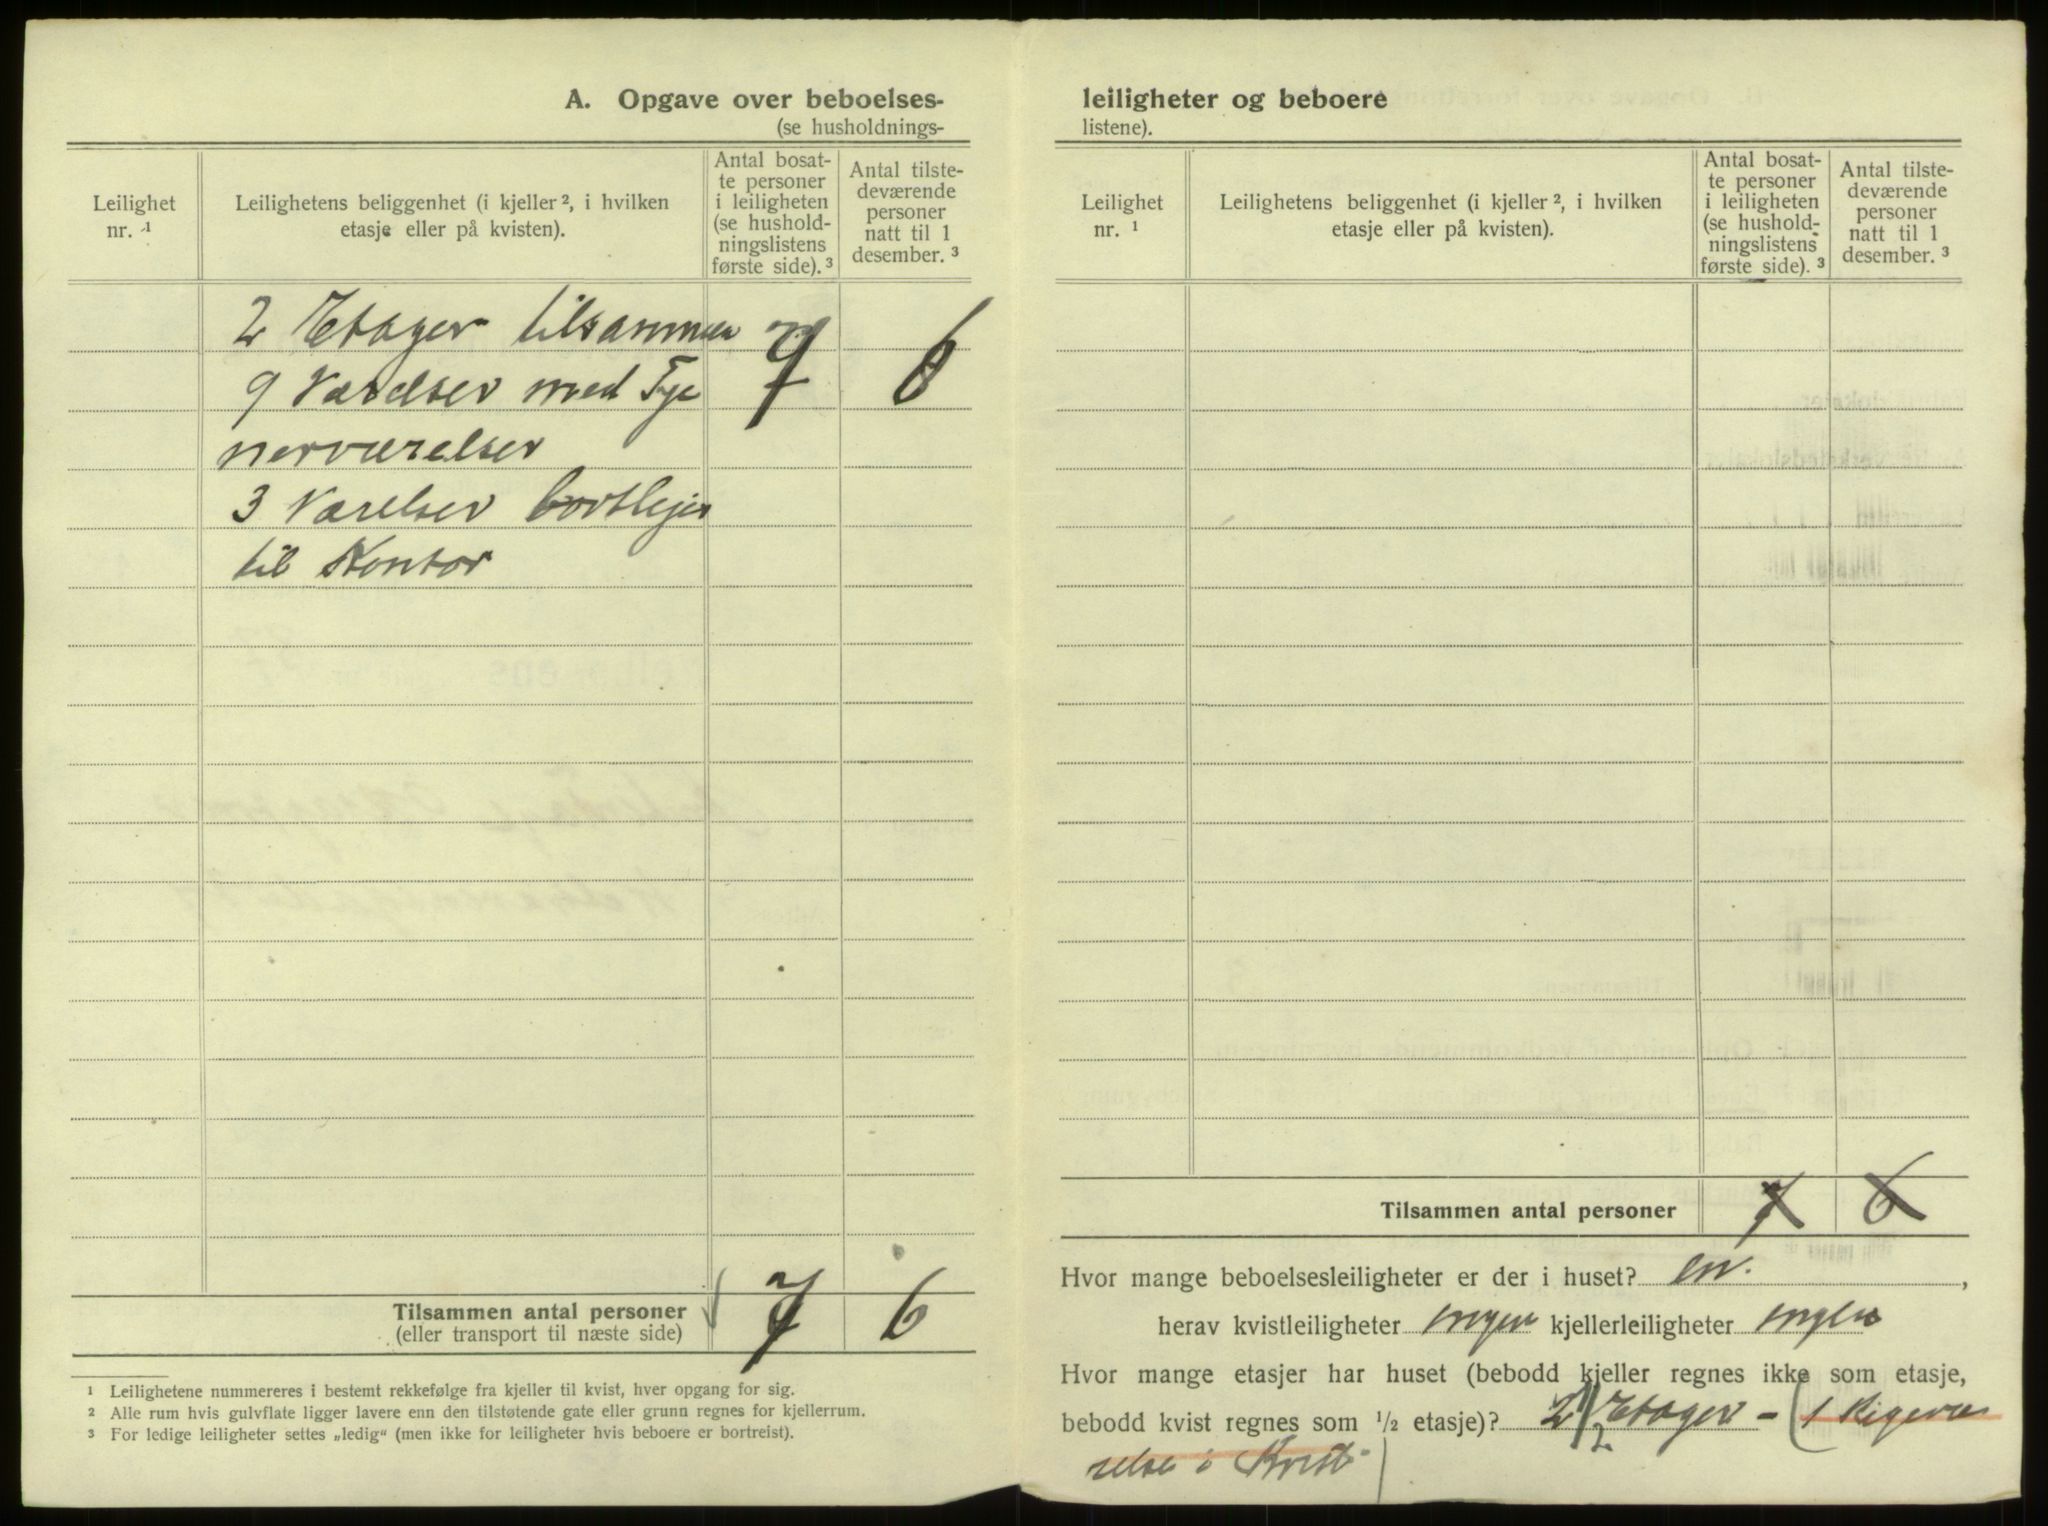 A. Opgave over beboelses-
(se husholdnings-
Leilighet
nr. ¹
Leilighetens beliggenhet (i kjeller ², i hvilken
etasje eller på kvisten).
Antal bosat-
te personer
i leiligheten
(se hushold-
ningslistens
første side). ³
Antal tilste-
deværende
personer
natt til 1
desember. ³
2 Etager tilsammen 7 6
9 Værelser med Tje
nerværelser
3 Værelser bortlejes
til Kontor
Tilsammen antal personer 7 6
(eller transport til næste side)
¹ Leilighetene nummereres i bestemt rekkefølge fra kjeller til kvist, hver opgang for sig.
² Alle rum hvis gulvflate ligger lavere enn den tilstøtende gate eller grunn regnes for kjellerrum.
³ For ledige leiligheter settes „ledig“ (men ikke for leiligheter hvis beboere er bortreist).
leiligheter og beboere
listene).
Leilighet
nr. ¹
Leilighetens beliggenhet (i kjeller ², i hvilken
etasje eller på kvisten).
Antal bosat-
te personer
i leiligheten
(se hushold-
ningslistens
første side). ³
Antal tilste-
deværende
personer
natt til 1
desember. ³
Tilsammen antal personer 7 6
Hvor mange beboelsesleiligheter er der i huset? en.,
herav kvistleiligheter ingen kjellerleiligheter ingen
Hvor mange etasjer har huset (bebodd kjeller regnes ikke som etasje,
bebodd kvist regnes som ½ etasje)? 2 1/2 Etager – (1 Pigevæ
relse i Kvist)